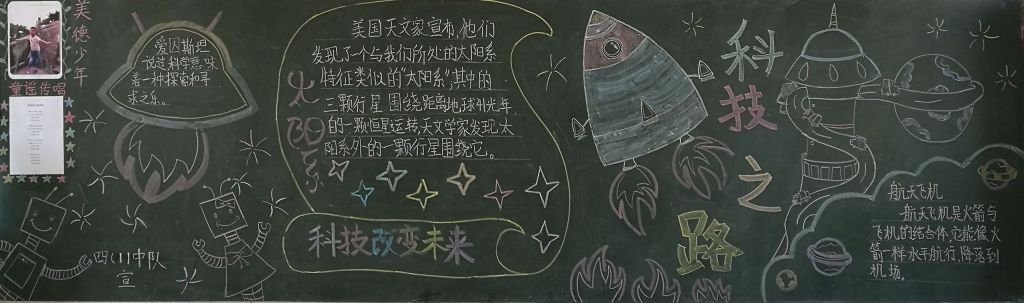 美德少年
童谣传唱
爱因斯坦
说过科学意味
着一种探索和寻
求之乐。
四(1)中队
宣
太阳系
美国天文家宣布,他们
发现了个与我们所处的太阳系
特征类似的"太阳系",其中的
三颗行星 围绕距离地球41光年
的一颗恒星运转,天文学家发现太
阳系外的一颗行星围绕它。
科技改变未来
科技之路
航天飞机
航天飞机是火箭与
飞机的结合体,它能像火
箭一样水平航行,降落到
机场。